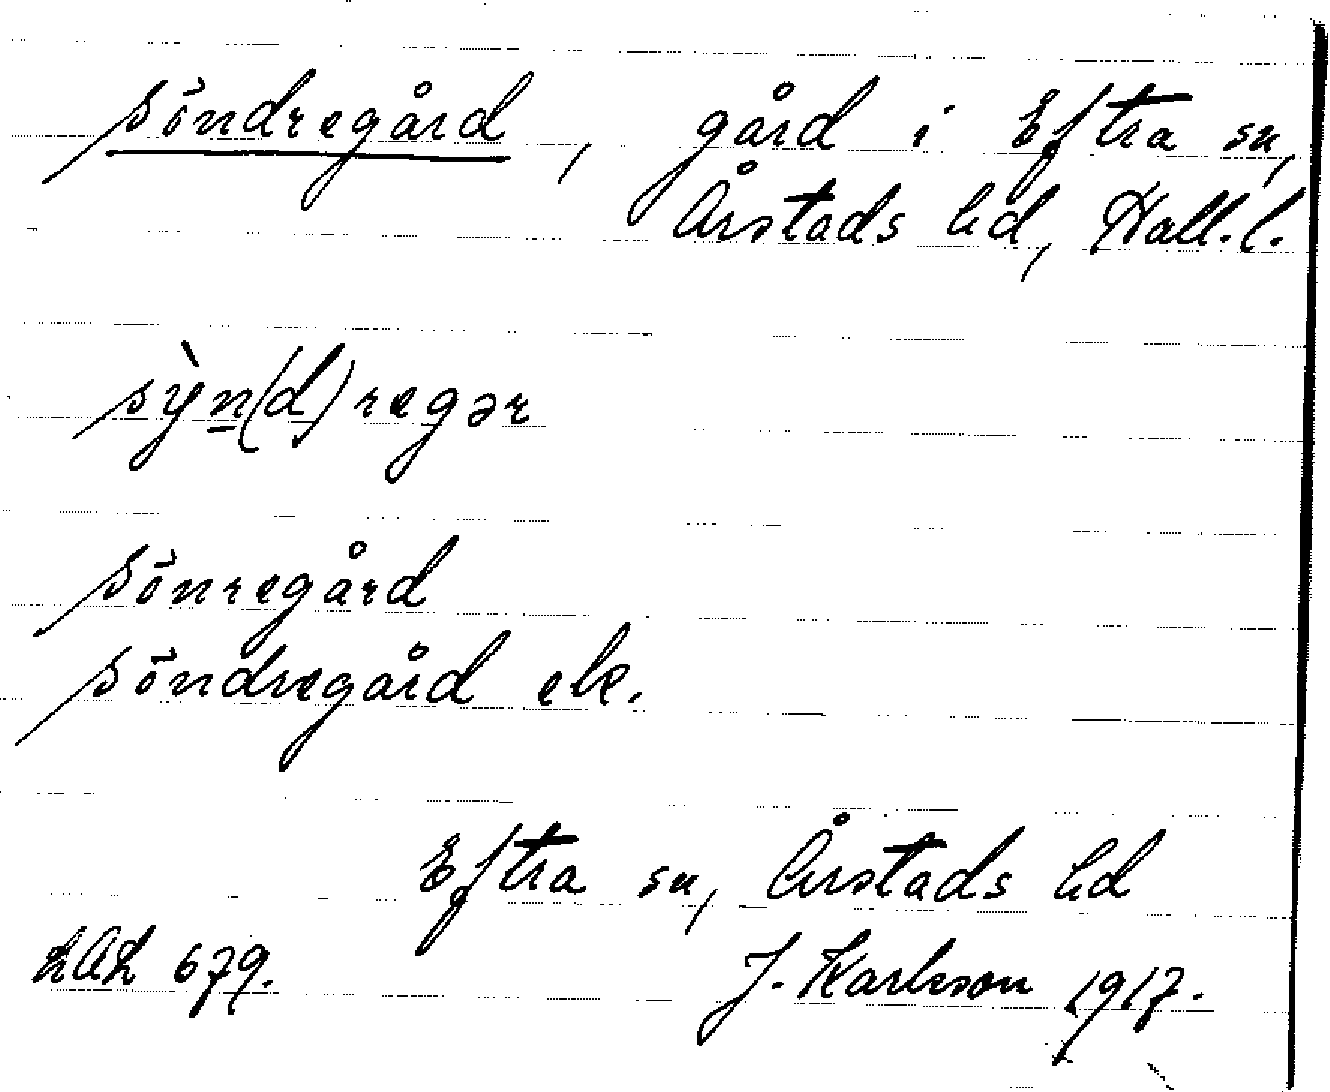 Söndregård, gård i Eftra sn,
Årstads hd, Hall. l.
sỳn(d)regər
Sönregård
Söndregård etc.
Eftra sn, Årstads hd
LAL 679. J. Karlsson 1917.